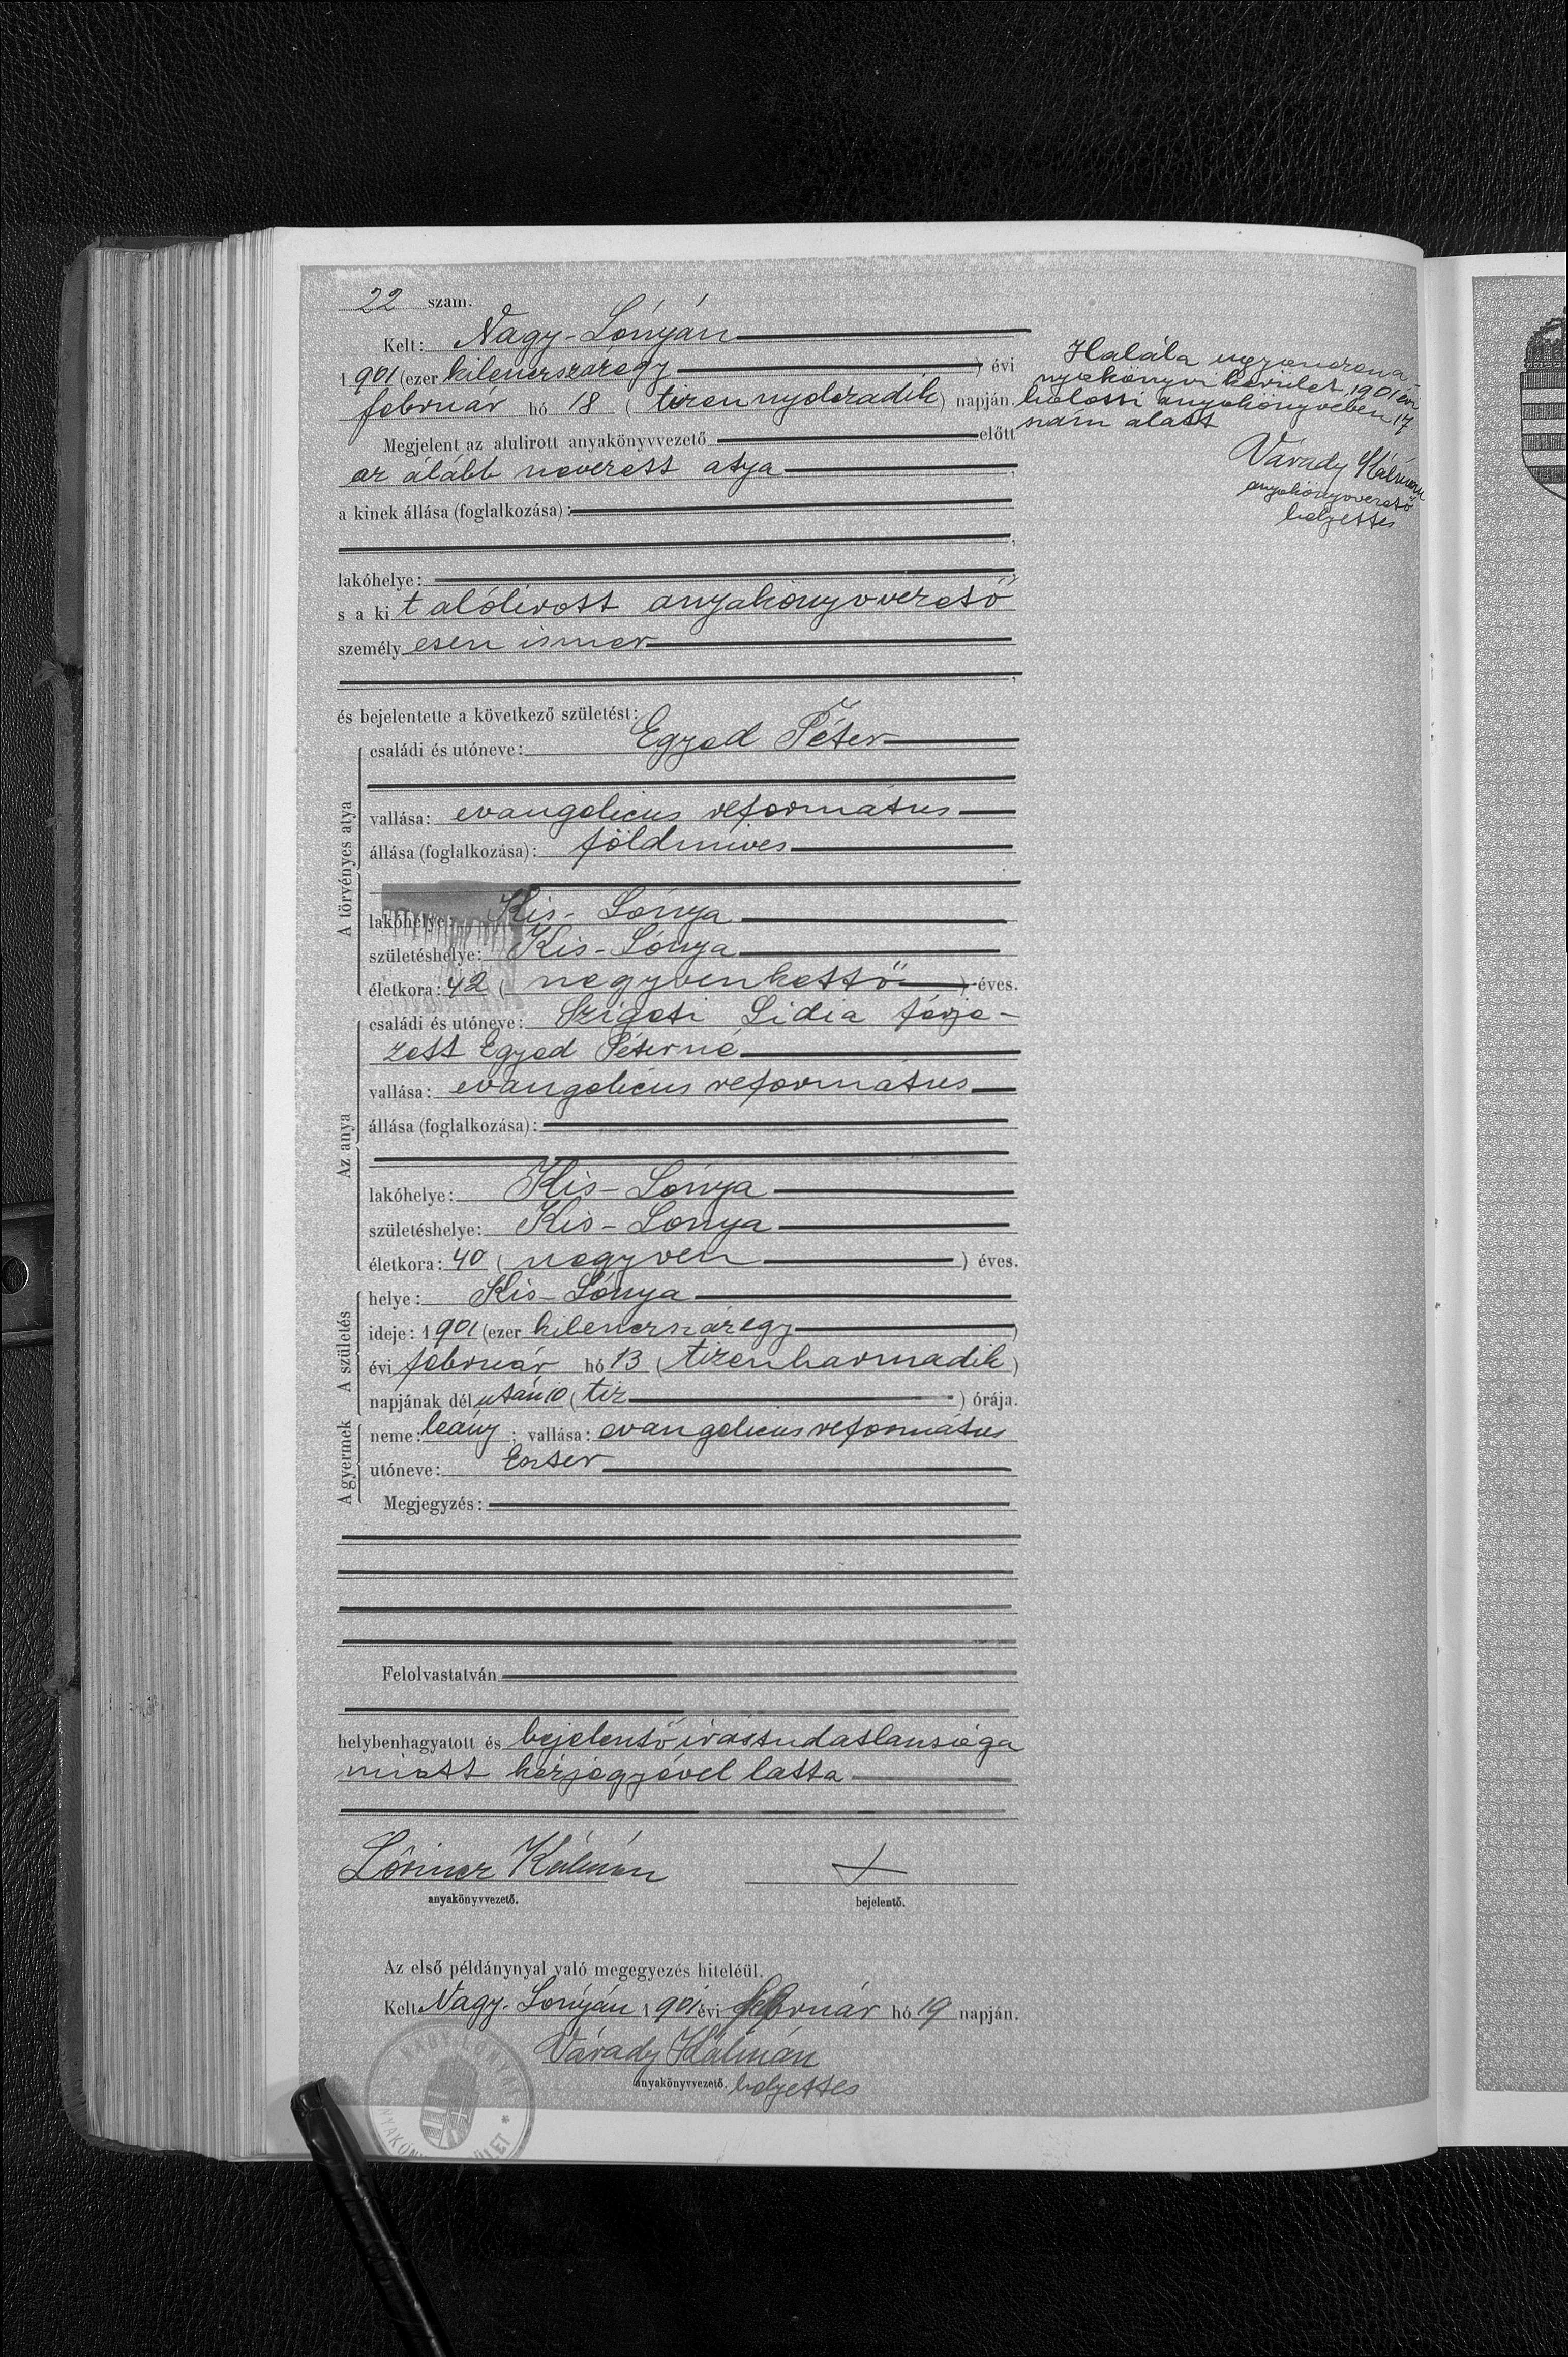 22 szám.
Kelt: Nagy-Lónyán
1901 (ezer kilenczszázegy) évi
február hó 18 (tizennyolczadik) napján.
Megjelent az alulirott anyakönyvvezető előtt
az alább nevezett atya
a kinek állása (foglalkozása):
lakóhelye:
s a kit alólirott anyakönyvvezető
személyesen ismer
és bejelentette a következő születést:
A törvényes atya
családi és utóneve: Egyed Péter
vallása: evangelicus református
állása (foglalkozása): földmives
lakóhelye: Kis-Lónya
születéshelye: Kis-Lónya
életkora: 42 (negyvenkettő) éves.
Az anya
családi és utóneve: Szigeti Lidia férje-
zett Egyed Péterné
vallása: evangelicus református
állása (foglalkozása):
lakóhelye: Kis-Lónya
születéshelye: Kis-Lonya
életkora: 40 (negyven) éves.
A születés
helye: Kis-Lónya
ideje: 1901 (ezer kilenczszázegy)
évi február hó 13 (tizenharmadik)
napjának délután 10 (tiz) órája.
A gyermek
neme: leány; vallása: evangelicus református
utóneve: Eszter
Megjegyzés:
Felolvastatván
helybenhagyatott és bejelentő irástudatlansága
miatt kézjegyével látta
Kálmán +
anyakönyvvezető. bejelentő.
Az első példánynyal való megegyezés hiteléül.
Kelt Nagy-Lónyán 1901 évi február hó 19 napján.
Várady Kálmán
anyakönyvvezető. helyettes
NAGY LÓNYAI
Halála ugyanezen a-
nyakönyvi kerület 1901 évi
halotti anyakönyvében 17.
szám alatt
Várady Kálmán
anyakönyvvezető
helyettes